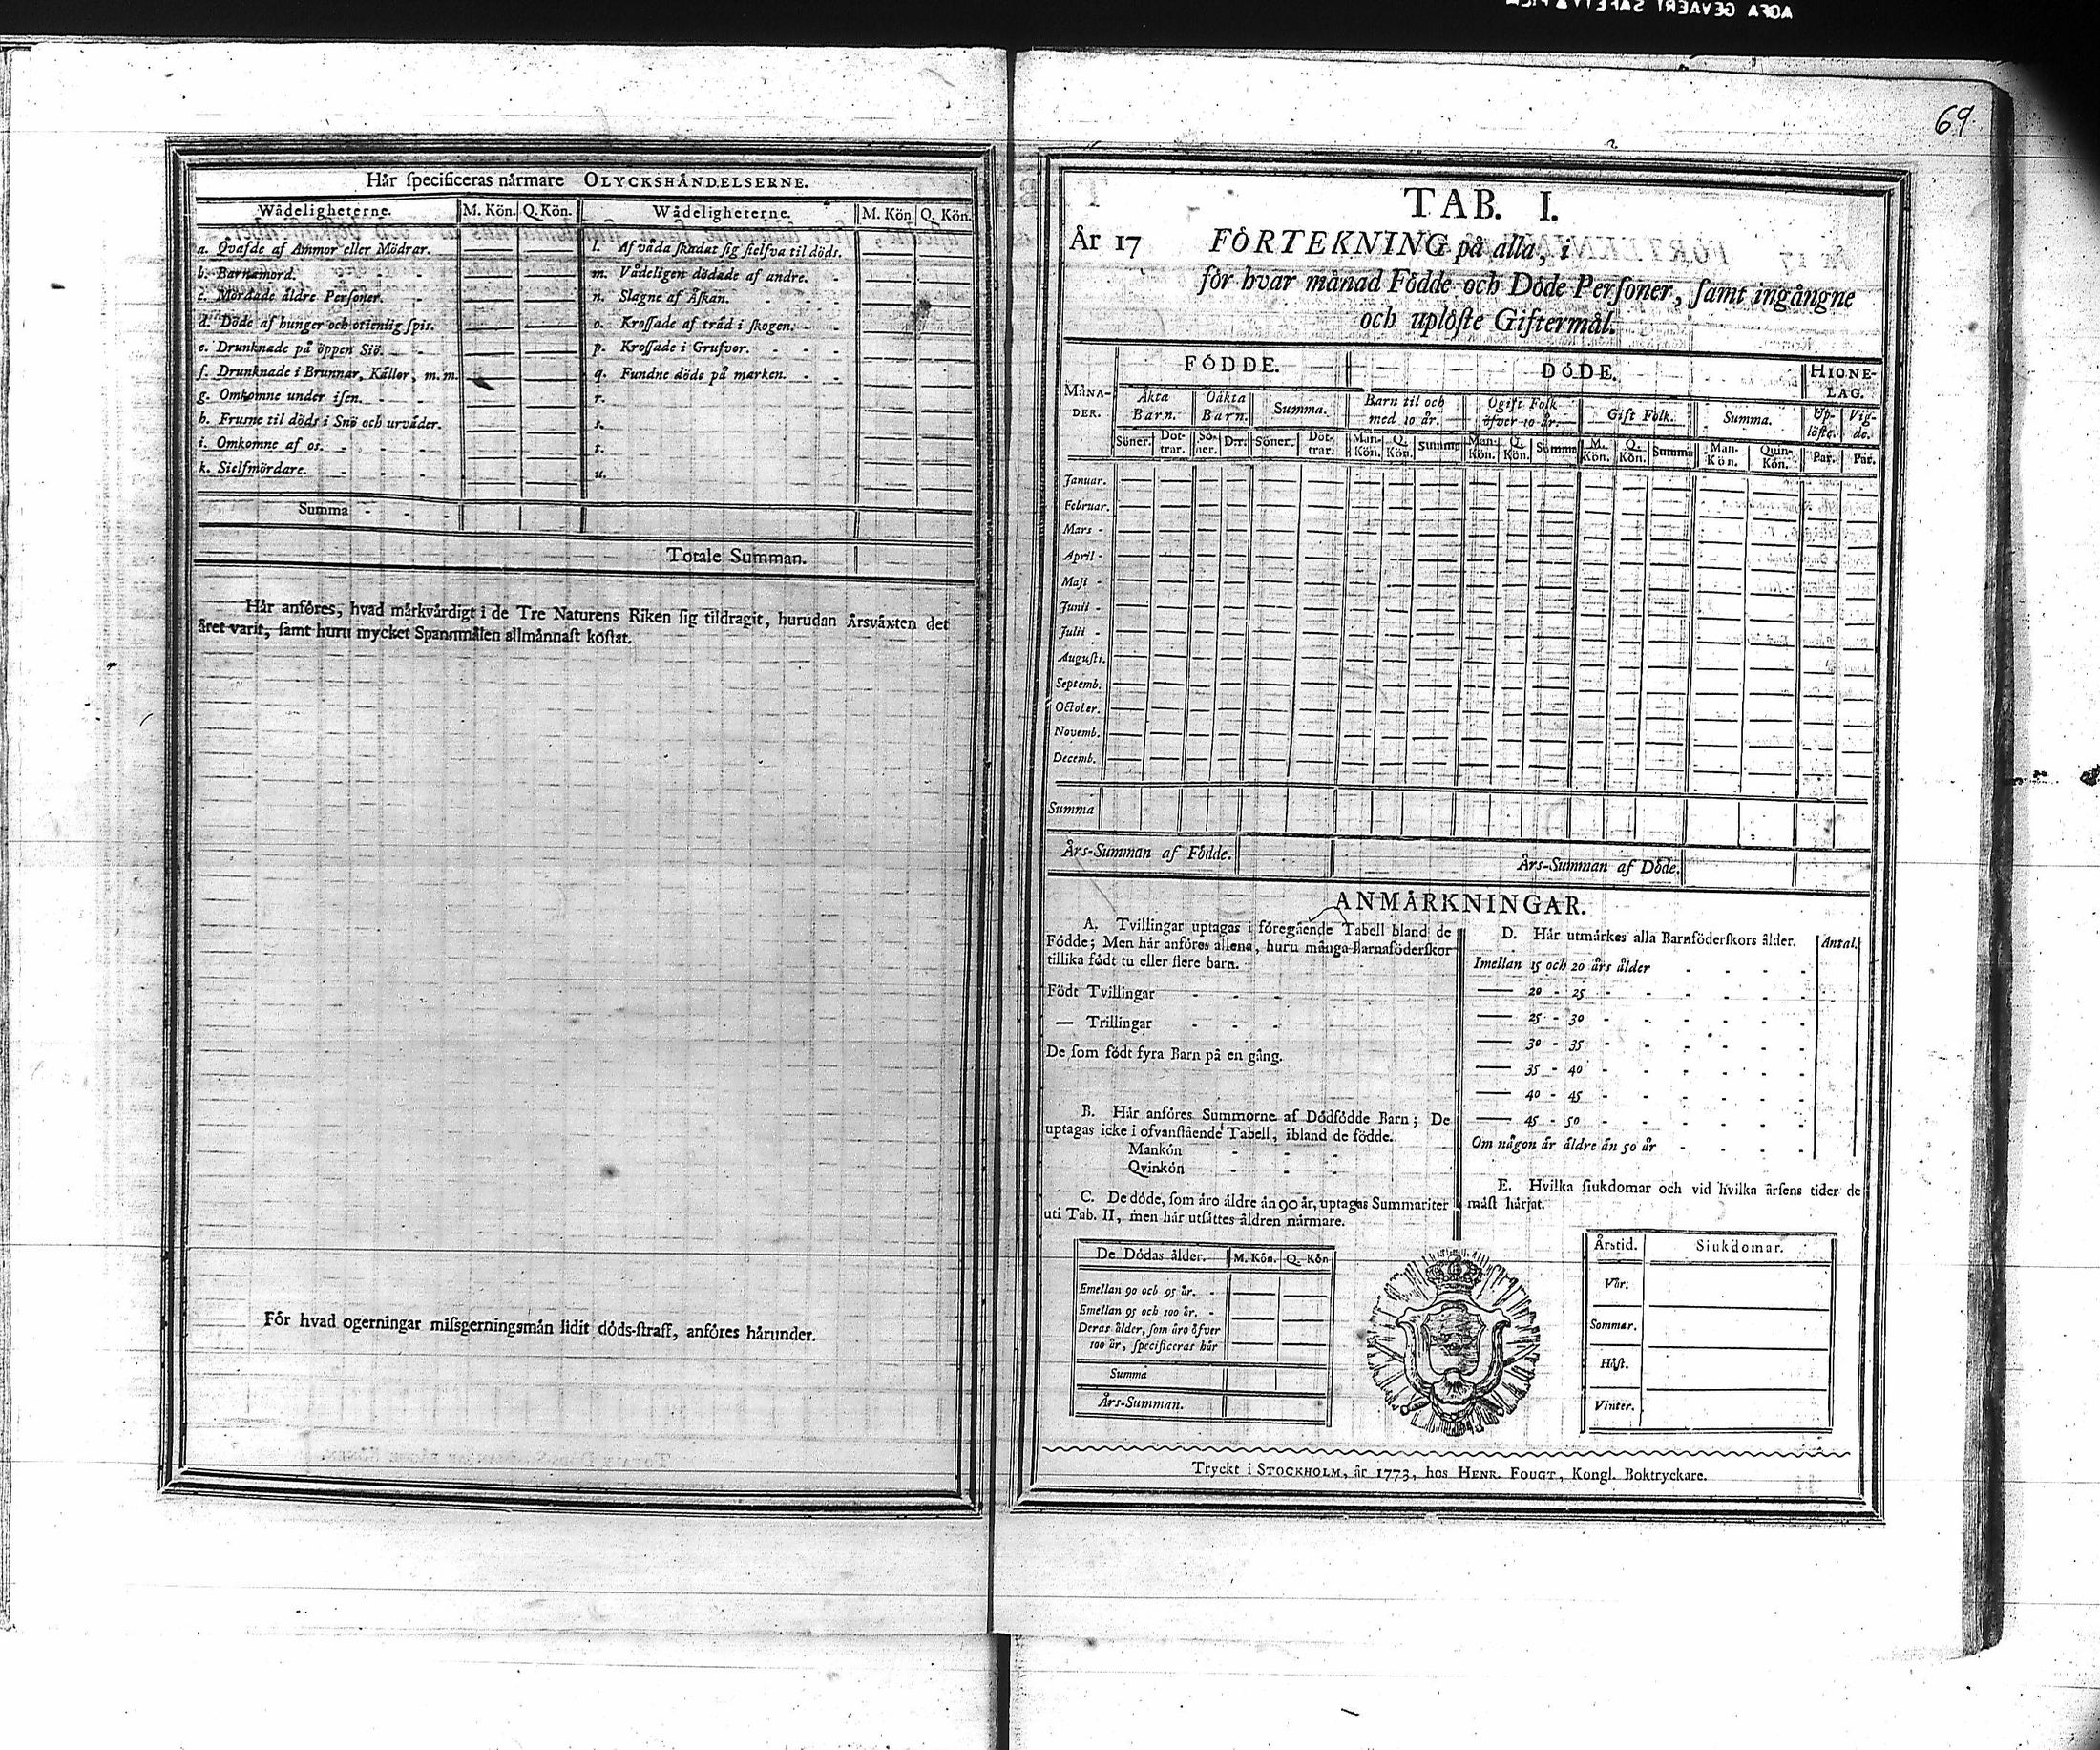 69
Hår specificeras nårmare OLYCKSHÅNDELSERNE.
Wådeligheterne. M. Kön. Q. Kön. Wådeligheterne. M. Kön. Q. Kön.
a. Qvafde af Ammor eller Mödrar.
b. Barnamord.
c. Mördade åldre Personer.
d. Döde af hunger och otienlig spis.
e. Drunknade på öppen Siö.
f. Drunknade i Brunnar, Kållor, m. m.
g. Omkomne under isen.
h. Frusne til döds i Snö och urvåder.
i. Omkomne af os.
k. Sielfmördare.
l. Af våda skadat sig sielfva til döds.
m. Vådeligen dödade af andre.
n. Slagne af Åskan.
o. Krossade af tråd i skogen.
p. Krossade i Grufvor.
q. Fundne döde på marken.
r.
s.
t.
u.
Summa
Totale Summan.
Hår anföres, hvad mårkvårdigt i de Tre Naturens Riken sig tildragit, hurudan Årsvåxten det
året varit, samt huru mycket Spannmålen allmånnast kostat.
För hvad ogerningar missgerningsmån lidit döds-straff, anföres hårunder.
TAB. I.
År 17 FÖRTEKNING på alla, i
för hvar månad Födde och Döde Personer, samt ingångne
och uplöste Giftermål.
MÅNA-
DER.
FÖDDE. DÖDE. HIONE-
LAG.
Åkta
Barn. Oåkta
Barn. Summa. Barn til och
med 10 år. Ogift Folk
öfver 10 år. Gift Folk. Summa. Up-
löste. Vig-
de.
Söner. Döt-
trar. Sö-
ner. Dtt: Söner. Döt-
trar. Man-
Kön. Q.
Kön. Summa Man-
Kön. Q.
Kön. Summa M.
Kön. Q.
Kön. Summa Man-
Kön. Quin-
Kön. Par. Par.
Januar.
Februar.
Mars -
April -
Maji -
Junii -
Julii -
Augusti.
Septemb.
October.
Novemb.
Decemb.
Summa
Års-Summan af Födde. Års-Summan af Döde.
ANMÅRKNINGAR.
A. Tvillingar uptagas i föregående Tabell bland de
Födde; Men hår anföres allena, huru många Barnaföderskor
tillika födt tu eller flere barn.
Födt Tvillingar - - -
— Trillingar - - -
De som födt fyra Barn på en gång.
B. Hår anföres Summorne af Dödfödde Barn; De
uptagas icke i ofvanstående Tabell, ibland de födde.
Mankön - - -
Qvinkön - - -
C. De döde, som åro åldre ån 90 år, uptagas Summariter
uti Tab. II, men hår utsåttes åldren nårmare.
De Dödas ålder. M. Kön. Q. Kön
Emellan 90 och 95 år. -
Emellan 95 och 100 år. -
Deras ålder, som åro öfver
100 år, specificeras hår
Summa
Års-Summan.
D. Hår utmårkes alla Barnföderskors ålder. Antal.
Imellan 15 och 20 års ålder
— 20 - 25
— 25 - 30
— 30 - 35
— 35 - 40
— 40 - 45
— 45 - 50
Om någon år åldre ån 50 år
E. Hvilka siukdomar och vid hvilka årsens tider de
måst hårjat.
Årstid. Siukdomar.
Vår.
Sommar.
Höst.
Vinter.
Tryckt i STOCKHOLM, år 1773, hos HENR. FOUGT, Kongl. Boktryckare.